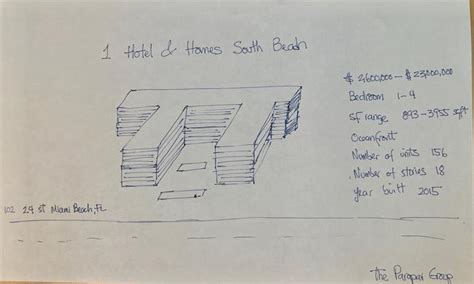 1 Hotel & Homes South Beach
$ 2,600,000 - $ 23,000,000
Bedroom 1-4
sf range 893-3955 sqft
Oceanfront
Number of units 156
Number of stories 18
year built 2015
102 24 st Miami Beach, FL
The Parapar Group